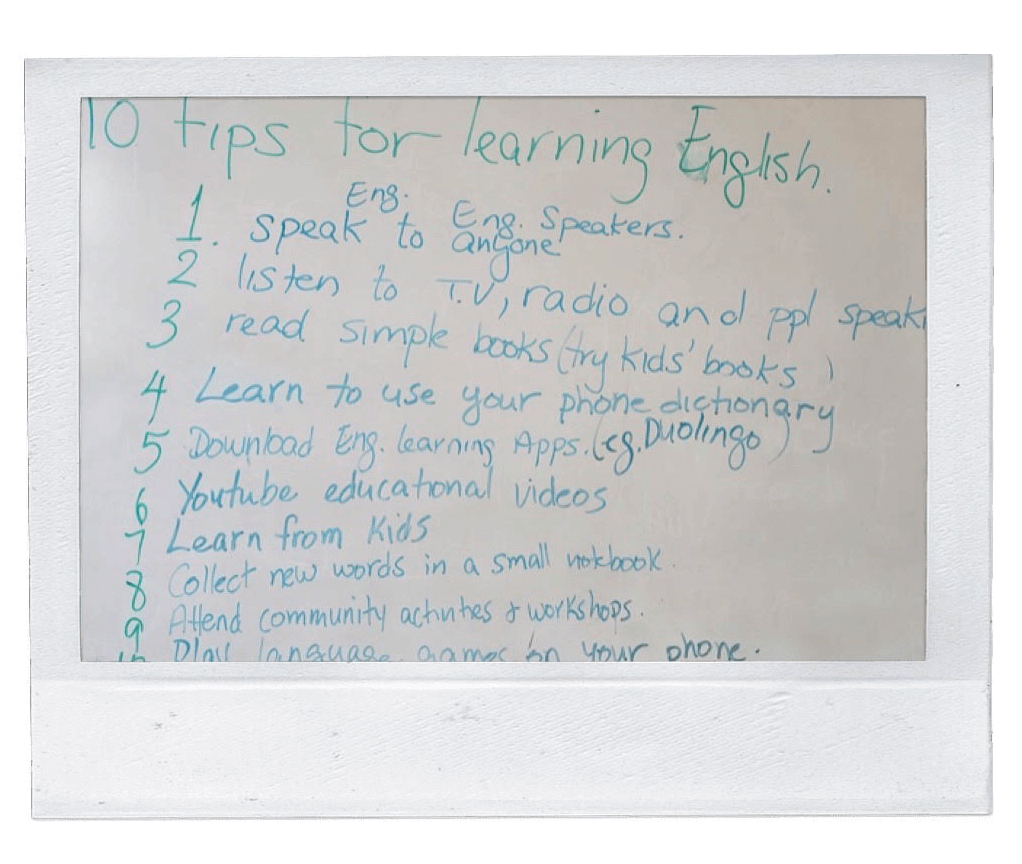 10 tips for learning English.
1. speak Eng. to Eng. Speakers.
anyone
2 listen to T.V, radio and ppl speaki
3 read simple books (try kids' books)
4 Learn to use your phone dictionary
5 Download Eng. learning Apps. (eg. Duolingo)
6 Youtube educational videos
7 Learn from Kids
8 Collect new words in a small notebook.
9 Attend community activities & workshops.
10 Play language games on your phone.